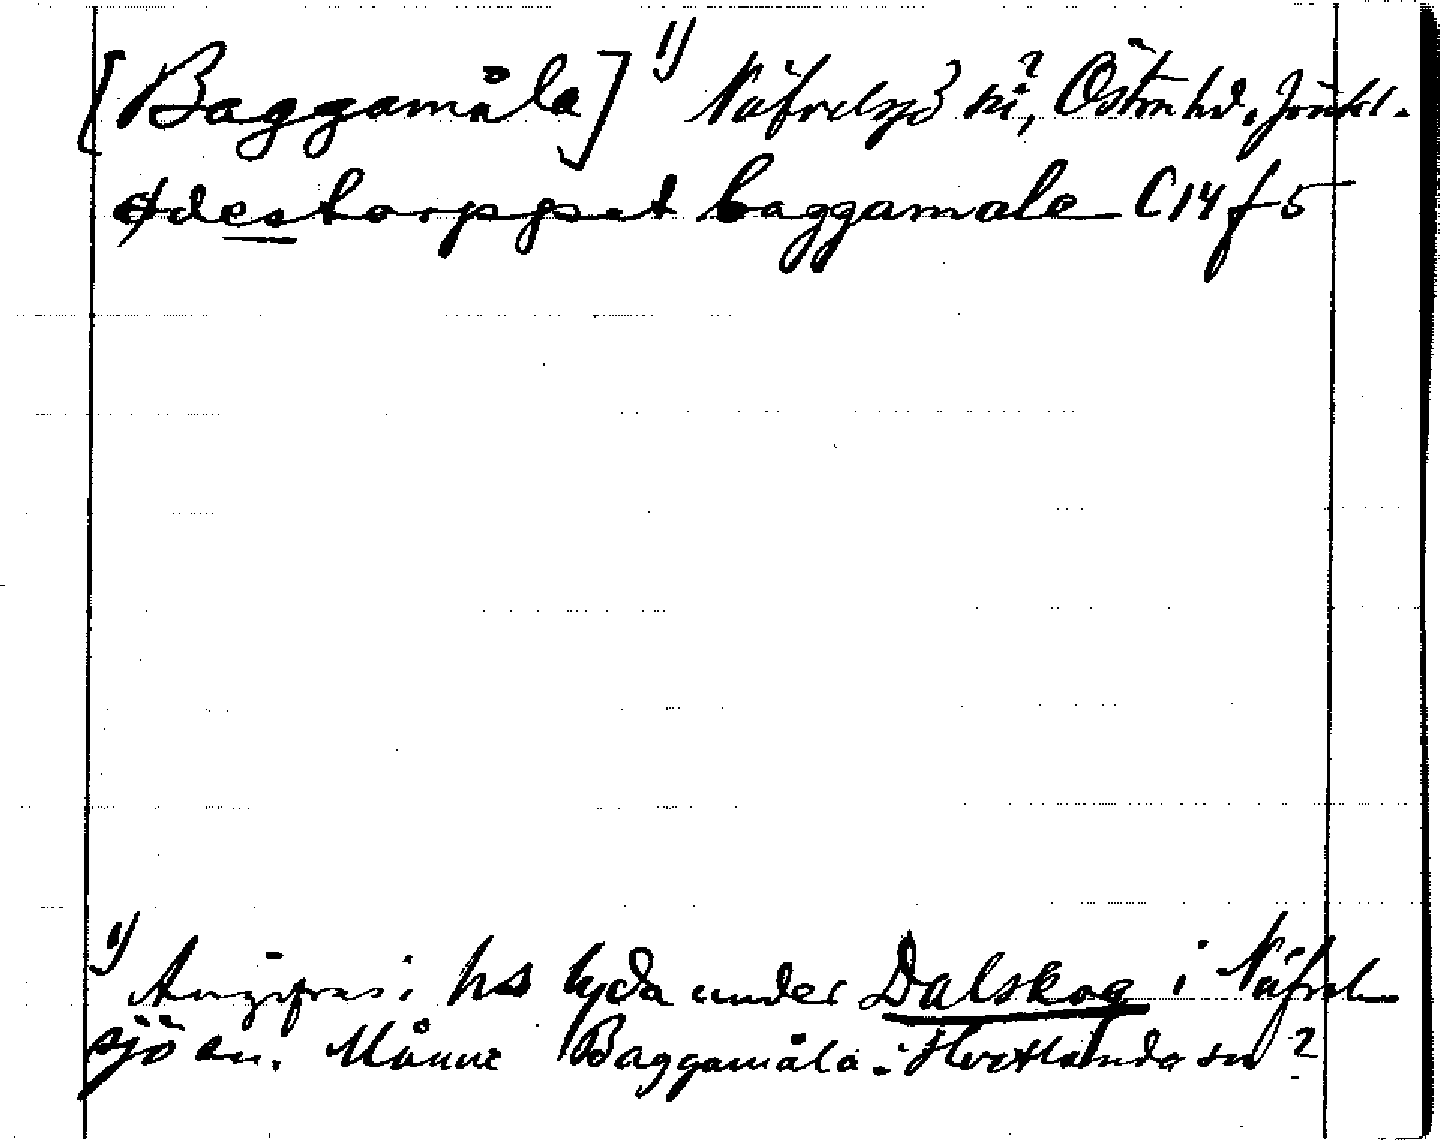 [Baggamåla] 1) Näfvelsjö sn?, Östra hd. Jönkl.
ødestorppet baggamale C 14 f 5
1) Angifves i hs lyda under Dalskog i Näfvel-
sjö sn. Månne Baggamåla i Hvetlanda sn?